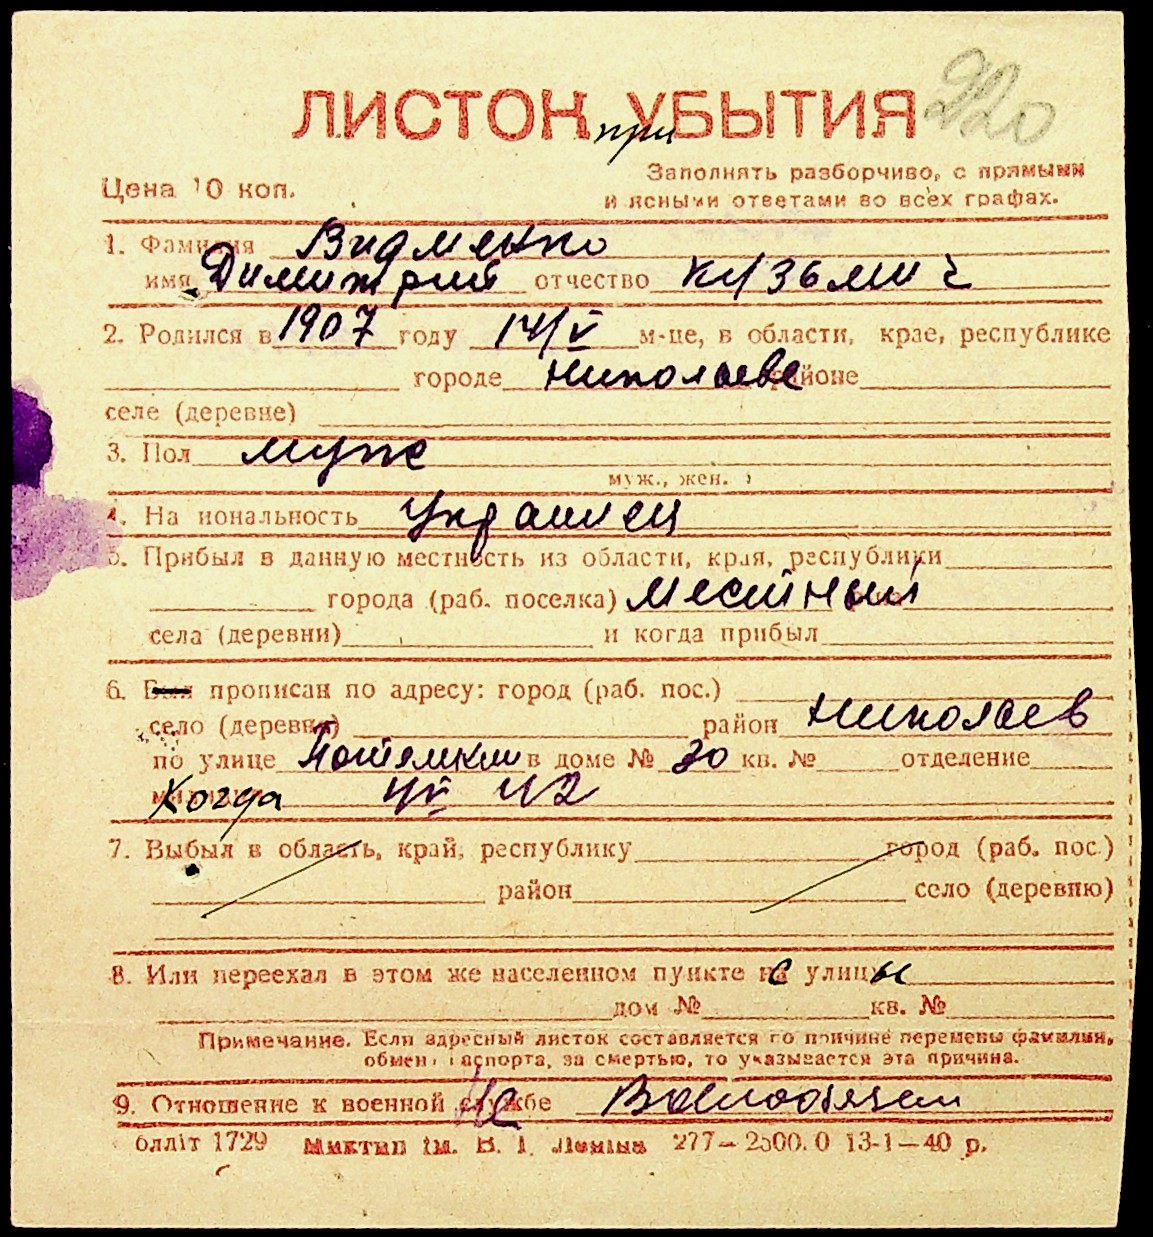 220
ЛИСТОК УБЫТИЯ
при
Цена 10 коп.
Заполнять разборчиво, с прямыми
и ясными ответами во всех графах.
1. Фамилия Видменко
имя Димитрий отчество Кузьмич
2. Родился в 1907 году 14/V м-це, в области, крае, республике
городе Николаеве районе
селе (деревне)
3. Пол муж
муж., жен.
4. Национальность украинец
5. Прибыл в данную местность из области, края, республики
города (раб. поселка) местный
села (деревни) и когда прибыл
6. Был прописан по адресу: город (раб. пос.)
село (деревня) район Николаев
по улице Потемкин в доме № 30 кв. № отделение
Когда 42
7. Выбыл в область, край, республику город (раб. пос.)
район село (деревню)
8. Или переехал в этом же населенном пункте с улицы
дом № кв. №
Примечание. Если адресный листок составляется по причине перемены фамилии,
обмена паспорта, за смертью, то указывается эта причина.
9. Отношение к военной службе Не Военнообязан
блліт 1729 Миктип ім. В. І. Леніна 277—2500.0 13-1—40 р.